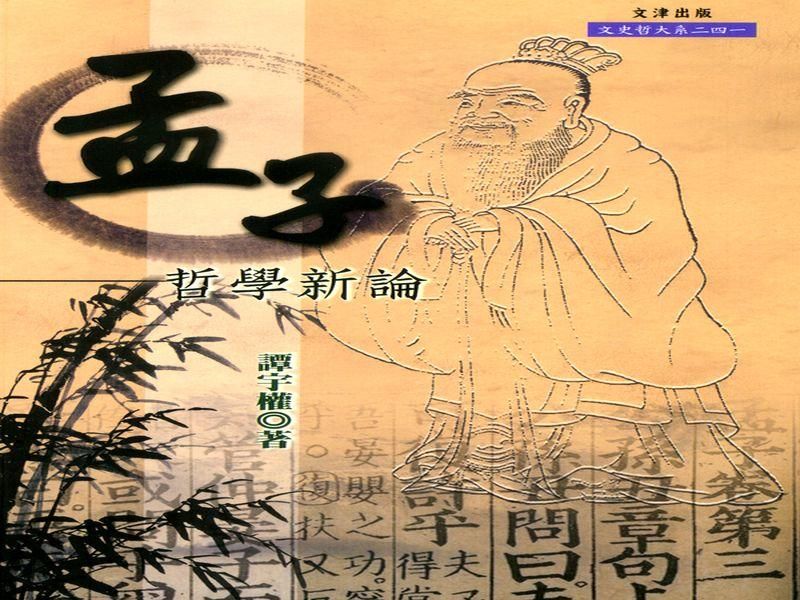 文津出版
文史哲大系二四一
孟子
哲學新論
譚宇權◎著
孟子卷第三
孫丑章句上
問曰夫
許乎
夫子
得當
晏嬰之功。
乎。復扶又反
管仲
或問乎